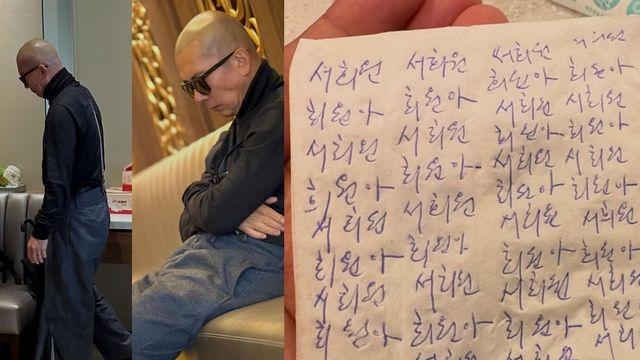 서희원 서희원 서희원
희원아 희원아 희원아 희원아
서희원 서희원 서희원 서희원
희원아 희원아 희원아 희원아
서희원 서희원 서희원 서희원
희원아 희원아 희원아 희원아
서희원 서희원 서희원 서희원
희원아 희원아 희원아 희원아
서희원 서희원 서희원
희원아 희원아